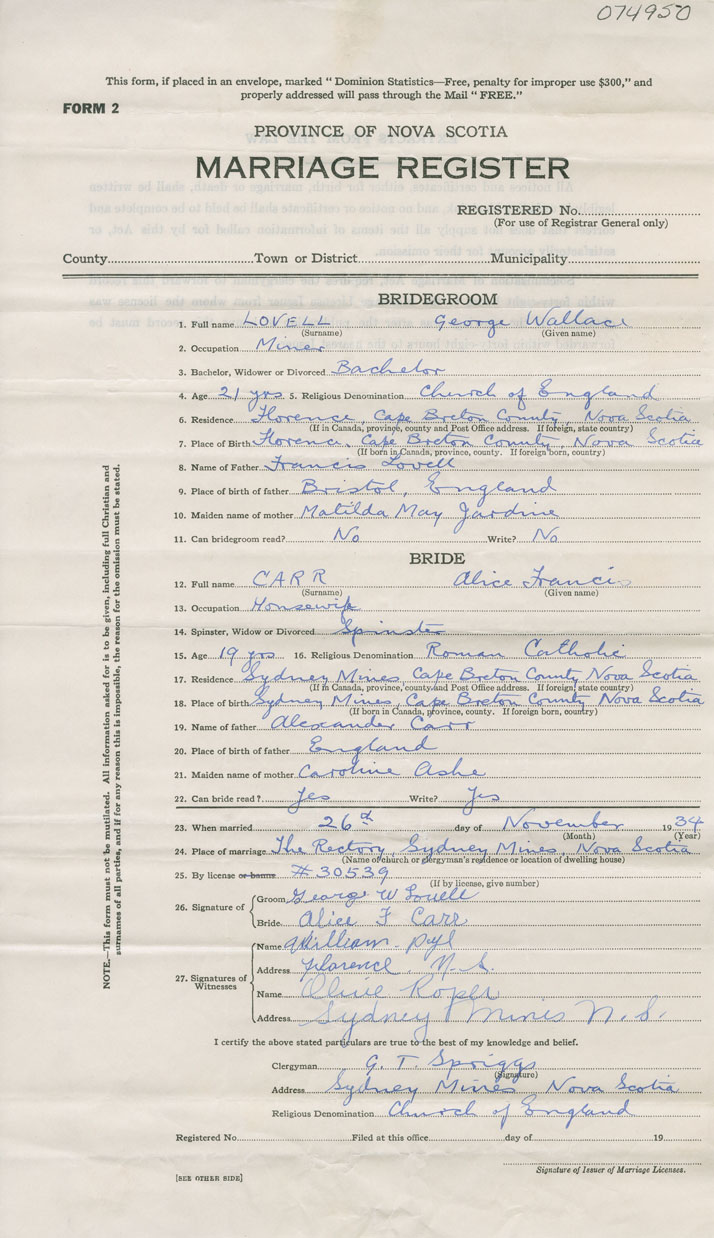 074950
This form, if placed in an envelope, marked "Dominion Statistics—Free, penalty for improper use $300," and
properly addressed will pass through the Mail "FREE."
FORM 2
PROVINCE OF NOVA SCOTIA
MARRIAGE REGISTER
REGISTERED No.
(For use of Registrar General only)
County Town or District Municipality
BRIDEGROOM
1. Full name LOVELL George Wallace
(Surname) (Given name)
2. Occupation Miner
3. Bachelor, Widower or Divorced Bachelor
4. Age 21 yrs 5. Religious Denomination Church of England
6. Residence Florence, Cape Breton County, Nova Scotia
(If in Canada, province, county and Post Office address. If foreign, state country)
7. Place of Birth Florence, Cape Breton County, Nova Scotia
(If born in Canada, province, county. If foreign born, country)
8. Name of Father Francis Lovell
9. Place of birth of father Bristol, England
10. Maiden name of mother Matilda May Jardine
11. Can bridegroom read? No Write? No
BRIDE
12. Full name CARR Alice Francis
(Surname) (Given name)
13. Occupation Housewife
14. Spinster, Widow or Divorced Spinster
15. Age 19 yrs 16. Religious Denomination Roman Catholic
17. Residence Sydney Mines, Cape Breton County Nova Scotia
(If in Canada, province, county and Post Office address. If foreign, state country)
18. Place of birth Sydney Mines, Cape Breton County Nova Scotia
(If born in Canada, province, county. If foreign born, country)
19. Name of father Alexander Carr
20. Place of birth of father England
21. Maiden name of mother Caroline Ashe
22. Can bride read? Yes Write? Yes
23. When married 26th day of November 1934
(Month) (Year)
24. Place of marriage The Rectory, Sydney Mines, Nova Scotia
(Name of church or clergyman's residence or location of dwelling house)
25. By license or banns #30539
(If by license, give number)
26. Signature of
Groom George W Lovell
Bride Alice F Carr
27. Signatures of Witnesses
Name William Pyl
Address Florence, N.S.
Name Olive Roper
Address Sydney Mines N.S.
I certify the above stated particulars are true to the best of my knowledge and belief.
Clergyman G. T. Spriggs
(Signature)
Address Sydney Mines Nova Scotia
Religious Denomination Church of England
Registered No. Filed at this office day of 19
Signature of Issuer of Marriage Licenses.
[SEE OTHER SIDE]
NOTE.—This form must not be mutilated. All information asked for is to be given, including full Christian and
surnames of all parties, and if for any reason this is impossible, the reason for the omission must be stated.